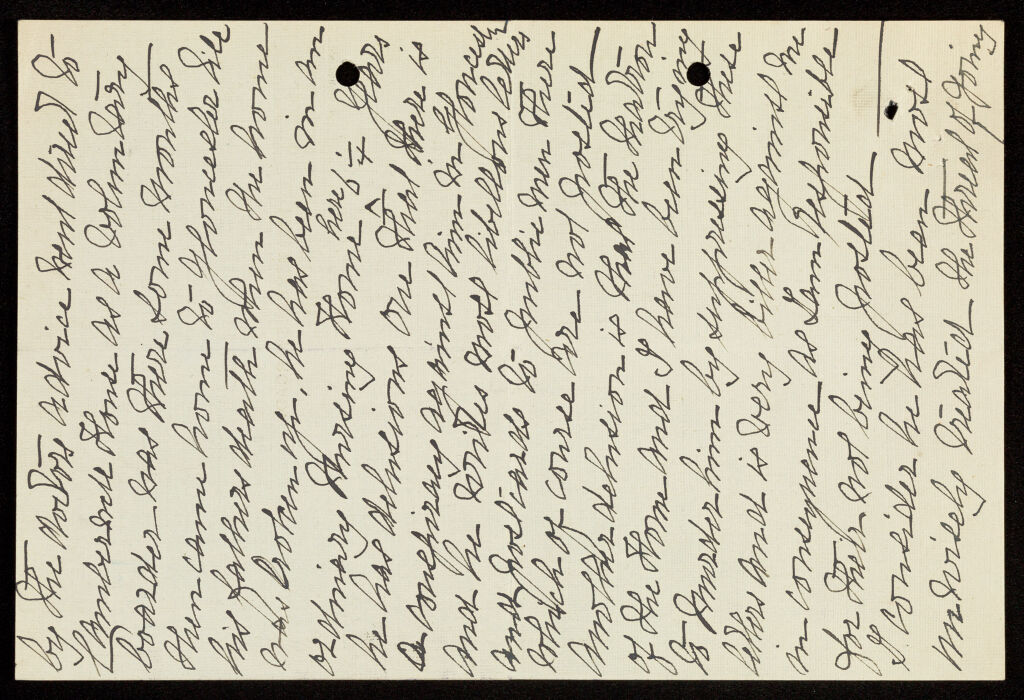 by the doctors advice and went to
House as a Voluntary
boarder was there some months
then came home to Yonesler till
his fathers death when the home
was broken up, he has been in an
ordinary Nursing Home here 6¼ years
he has delusions one that there is
a conspiracy against him in forced
and he writes most libellous letters
and Postcards to public men there
which of course are not posted
another delusion is that to the Matron
of the Home and I have been trying
to murder him by suppressing these
letters and is very bitter against me
in consequence as I am responsible
for their not being posted
I consider he has been most
unwisely treated the dread of going